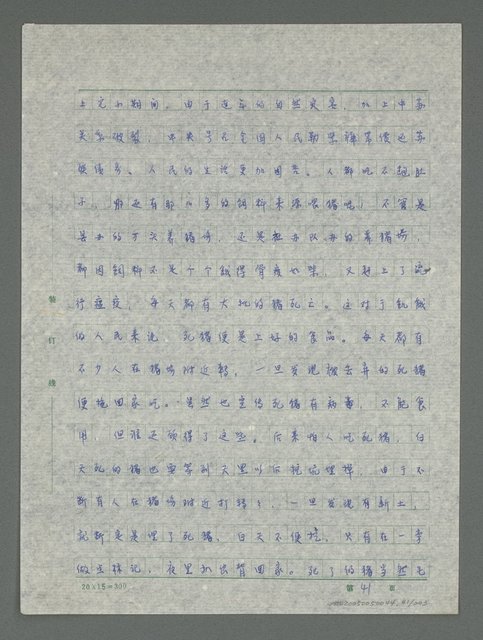 上元小期间。由于连年的自然灾害，加上中苏
关系破裂，中央号召全国人民勒紧裤带偿还苏
俄债务。人民的生活更加困苦。人都吃不饱肚
子，那还有那么多的饲料来源喂猪呢！不管是
县办的万头养猪场，还是社办队办的养猪场，
都因饲料不足个个饿得骨瘦如柴，又赶上了流
行瘟疫，每天都有大批的猪死亡。这对于饥饿
的人民来说，死猪便是上好的食品。每天都有
不少人在猪场附近转，一旦发现被丢弃的死猪
便拖回家吃。虽然也宣传死猪有病毒，不能食
用，但谁还顾得了这些。后来怕人吃死猪，白
天死的猪也要等到天黑以后挖坑埋掉，由于不
断有人在猪场附近打转，一旦发现有新土，
就断定是埋了死猪，白天不便挖，只有在一旁
做出标记，夜里扒出背回家。死了的猪当然无
装
订
线
20×15=300
第41页